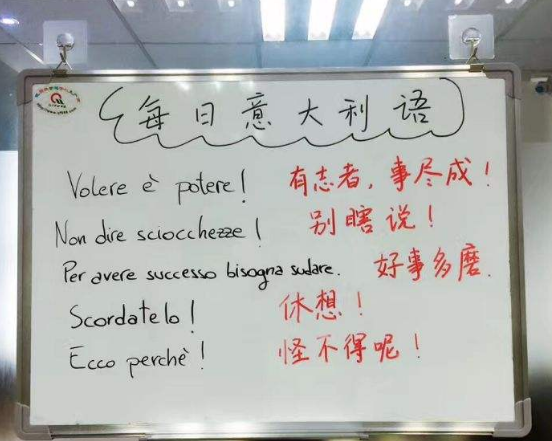 每日意大利语
Volere è potere! 有志者，事尽成！
Non dire sciocchezze! 别瞎说！
Per avere successo bisogna sudare. 好事多磨.
Scordatelo! 休想！
Ecco perchè! 怪不得呢！